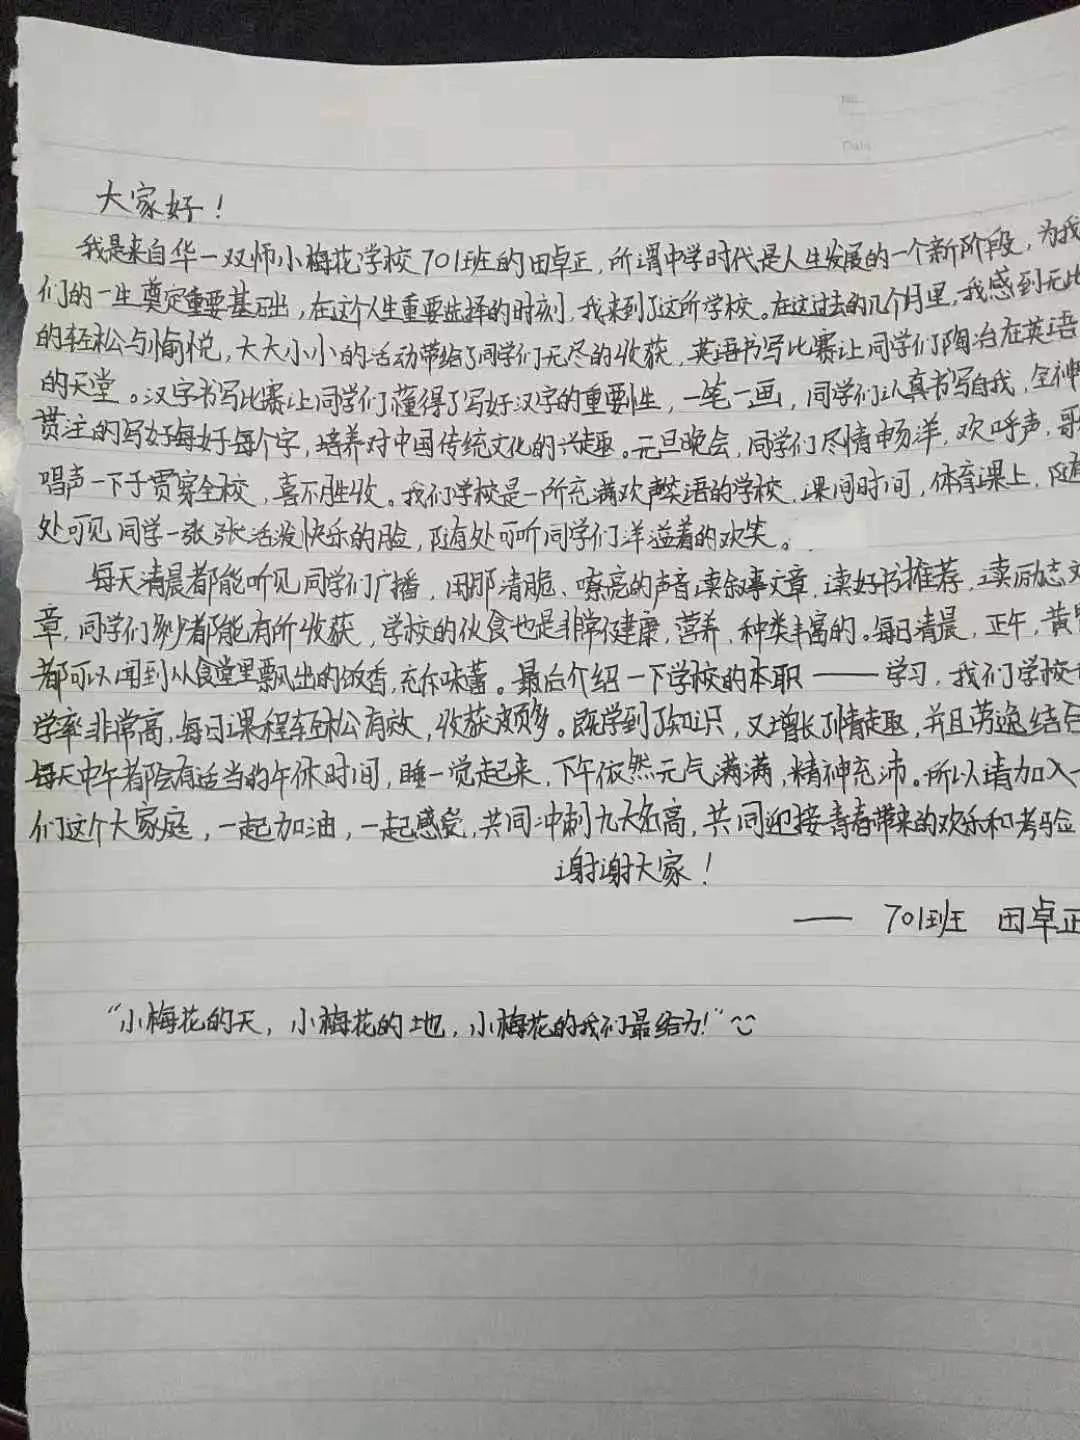 大家好！
我是来自华一双师小梅花学校701班的田卓正，所谓中学时代是人生发展的一个新阶段，为我
们的一生奠定重要基础，在这个人生重要选择的时刻，我来到了这所学校。在这过去的几个月里，我感到无比
的轻松与愉悦，大大小小的活动带给了同学们无尽的收获，英语书写比赛让同学们陶冶在英语
的天堂。汉字书写比赛让同学们懂得了写好汉字的重要性，一笔一画，同学们认真书写自我，全神
贯注的写好每好每个字，培养对中国传统文化的兴趣。元旦晚会，同学们尽情畅洋，欢呼声，歌
唱声一下子贯穿全校，喜不胜收。我们学校是一所充满欢声笑语的学校，课间时间，体育课上，随
处可见同学一张张活泼快乐的脸，随处可听同学们洋溢着的欢笑。
每天清晨都能听见同学们广播，用那清脆、嘹亮的声音读叙事文章，读好书推荐，读励志文
章，同学们多少都能有所收获，学校的伙食也是非常健康，营养，种类丰富的。每日清晨，正午，黄
都可以闻到从食堂里飘出的饭香，充斥味蕾。最后介绍一下学校的本职——学习，我们学校
学率非常高，每日课程轻松有效，收获颇多。既学到了知识，又增长了情趣，并且劳逸结合
每天中午都会有适当的午休时间，睡一觉起来，下午依然元气满满，精神充沛。所以请加入
们这个大家庭，一起加油，一起感受，共同冲刺九天之高，共同迎接青春带来的欢乐和考验
谢谢大家！
—— 701班 田卓正
“小梅花的天，小梅花的地，小梅花的我们最给力！”